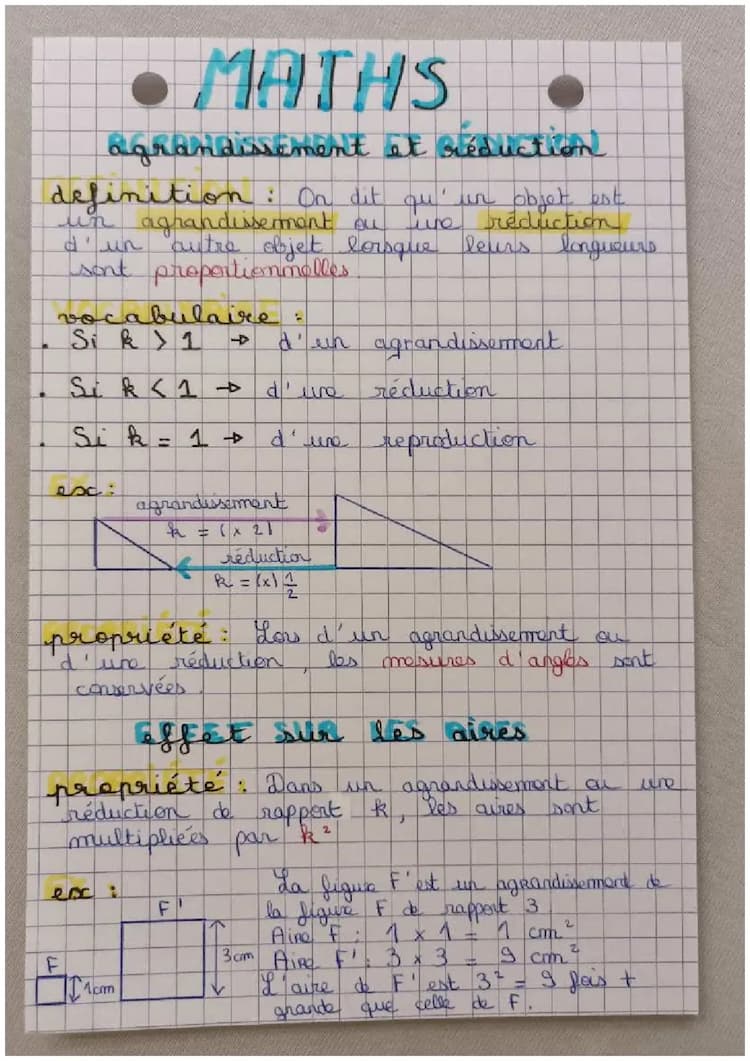 MATHS
agrandissement et réduction
definition : On dit qu'un objet est
un agrandissement ou une réduction
d'un autre objet lorsque leurs longueurs
sont proportionnelles
vocabulaire :
. Si k > 1 → d'un agrandissement
. Si k < 1 → d'une réduction
. Si k = 1 → d'une reproduction
ex :
agrandissement
k = (x 2)
réduction
k = (x) 1/2
propriété : Lors d'un agrandissement ou
d'une réduction, les mesures d'angles sont
conservées.
effet sur les aires
propriété : Dans un agrandissement ou une
réduction de rapport k, les aires sont
multipliées par k²
ex :
La figure F' est un agrandissement de
la figure F de rapport 3
Aire F : 1 x 1 = 1 cm²
Aire F' : 3 x 3 = 9 cm²
L'aire de F' est 3² = 9 fois +
grande que celle de F.
F'
3cm
F
1cm